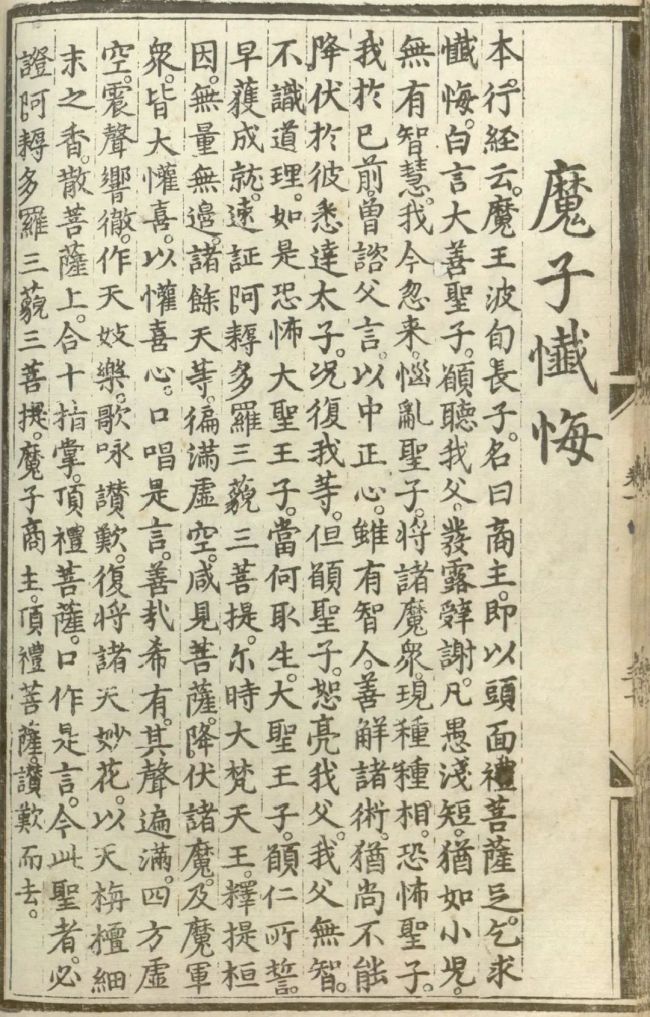 魔子懺悔
本行經云。魔王波旬長子。名曰商主。即以頭面禮菩薩足。乞求
懺悔。白言大善聖子。願聽我父。發露辭謝。凡愚淺短。猶如小兒。
無有智慧。我今忽来。惱亂聖子。将諸魔衆。現種種相。恐怖聖子。
我於已前。曽諮父言。以中正心。雖有智人。善解諸術。猶尚不能
降伏於彼悉達太子。况復我等。但願聖子。恕亮我父。我父無智。
不識道理。如是恐怖大聖王子。當何取生。大聖王子。願仁所誓。
早獲成就。速証阿耨多羅三藐三菩提。尓時大梵天王。釋提桓
因。無量無邊。諸餘天等。徧滿虚空。咸見菩薩。降伏諸魔。及魔軍
衆。皆大懽喜。以懽喜心。口唱是言。善㢤希有。其聲遍滿。四方虚
空。震聲響徹。作天妓樂。歌咏讃歎。復将諸天妙花。以天栴檀細
末之香。散菩薩上。合十指掌。頂禮菩薩。口作是言。今此聖者。必
證阿耨多羅三藐三菩提。魔子商主。頂禮菩薩。讃歎而去。